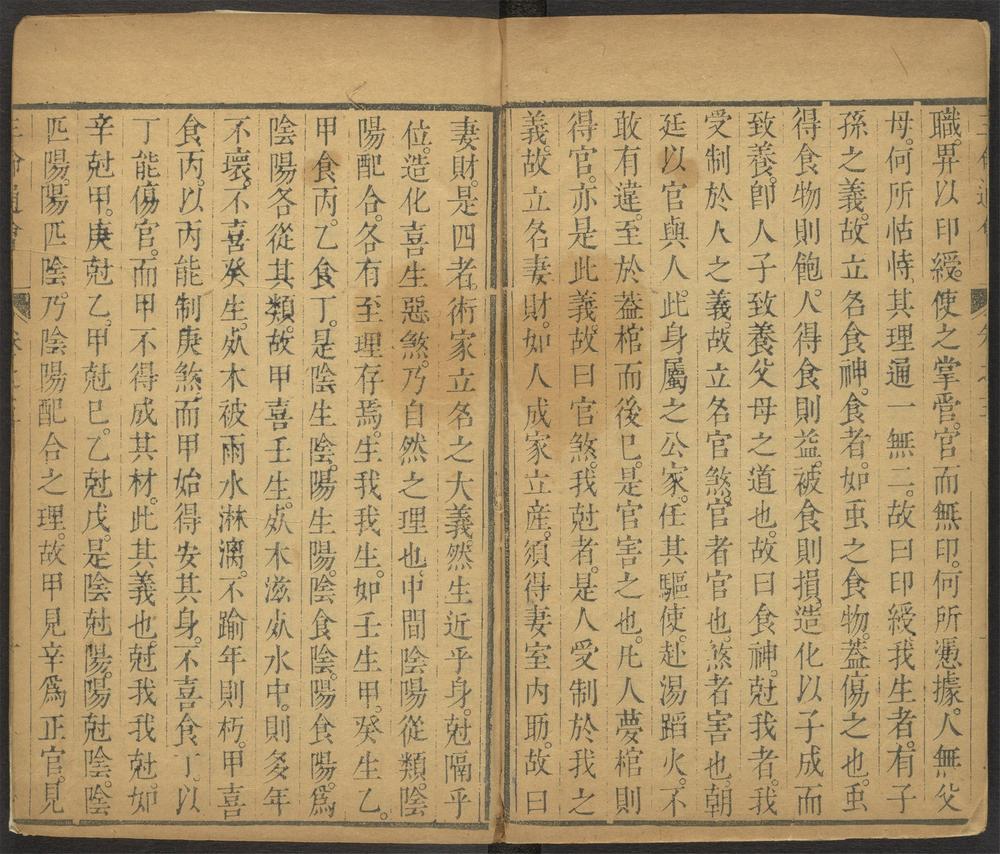 職。畀以印綬。使之掌管。官而無印。何所憑據。人無父
母。何所怙恃。其理通一無二。故曰印綬。我生者。有子
孫之義。故立名食神。食者。如虫之食物。蓋傷之也。虫
得食物則飽。人得食則益。被食則損。造化以子成而
致養。卽人子致養父母之道也。故曰食神。尅我者。我
受制於人之義。故立名官煞。官者官也。煞者害也。朝
廷以官與人。此身屬之公家。任其驅使。赴湯蹈火。不
敢有違。至於蓋棺而後已。是官害之也。凡人夢棺則
得官。亦是此義。故曰官煞。我尅者。是人受制於我之
義。故立名妻財。如人成家立産。須得妻室內助。故曰
妻財。是四者。術家立名之大義。然生近乎身。尅隔乎
位。造化喜生惡煞。乃自然之理也。中間陰陽從類。陰
陽配合。各有至理存焉。生我我生。如壬生甲。癸生乙。
甲食丙。乙食丁。是陰生陰。陽生陽。陰食陰。陽食陽。爲
陰陽各從其類。故甲喜壬生。如木滋於水中。則多年
不壞。不喜癸生。如木被雨水淋漓。不踰年則朽。甲喜
食丙。以丙能制庚煞。而甲始得安其身。不喜食丁。以
丁能傷官。而甲不得成其材。此其義也。尅我我尅。如
辛尅甲。庚尅乙。甲尅巳。乙尅戊。是陰尅陽。陽尅陰。陰
匹陽。陽匹陰。乃陰陽配合之理。故甲見辛爲正官。見
三命通會